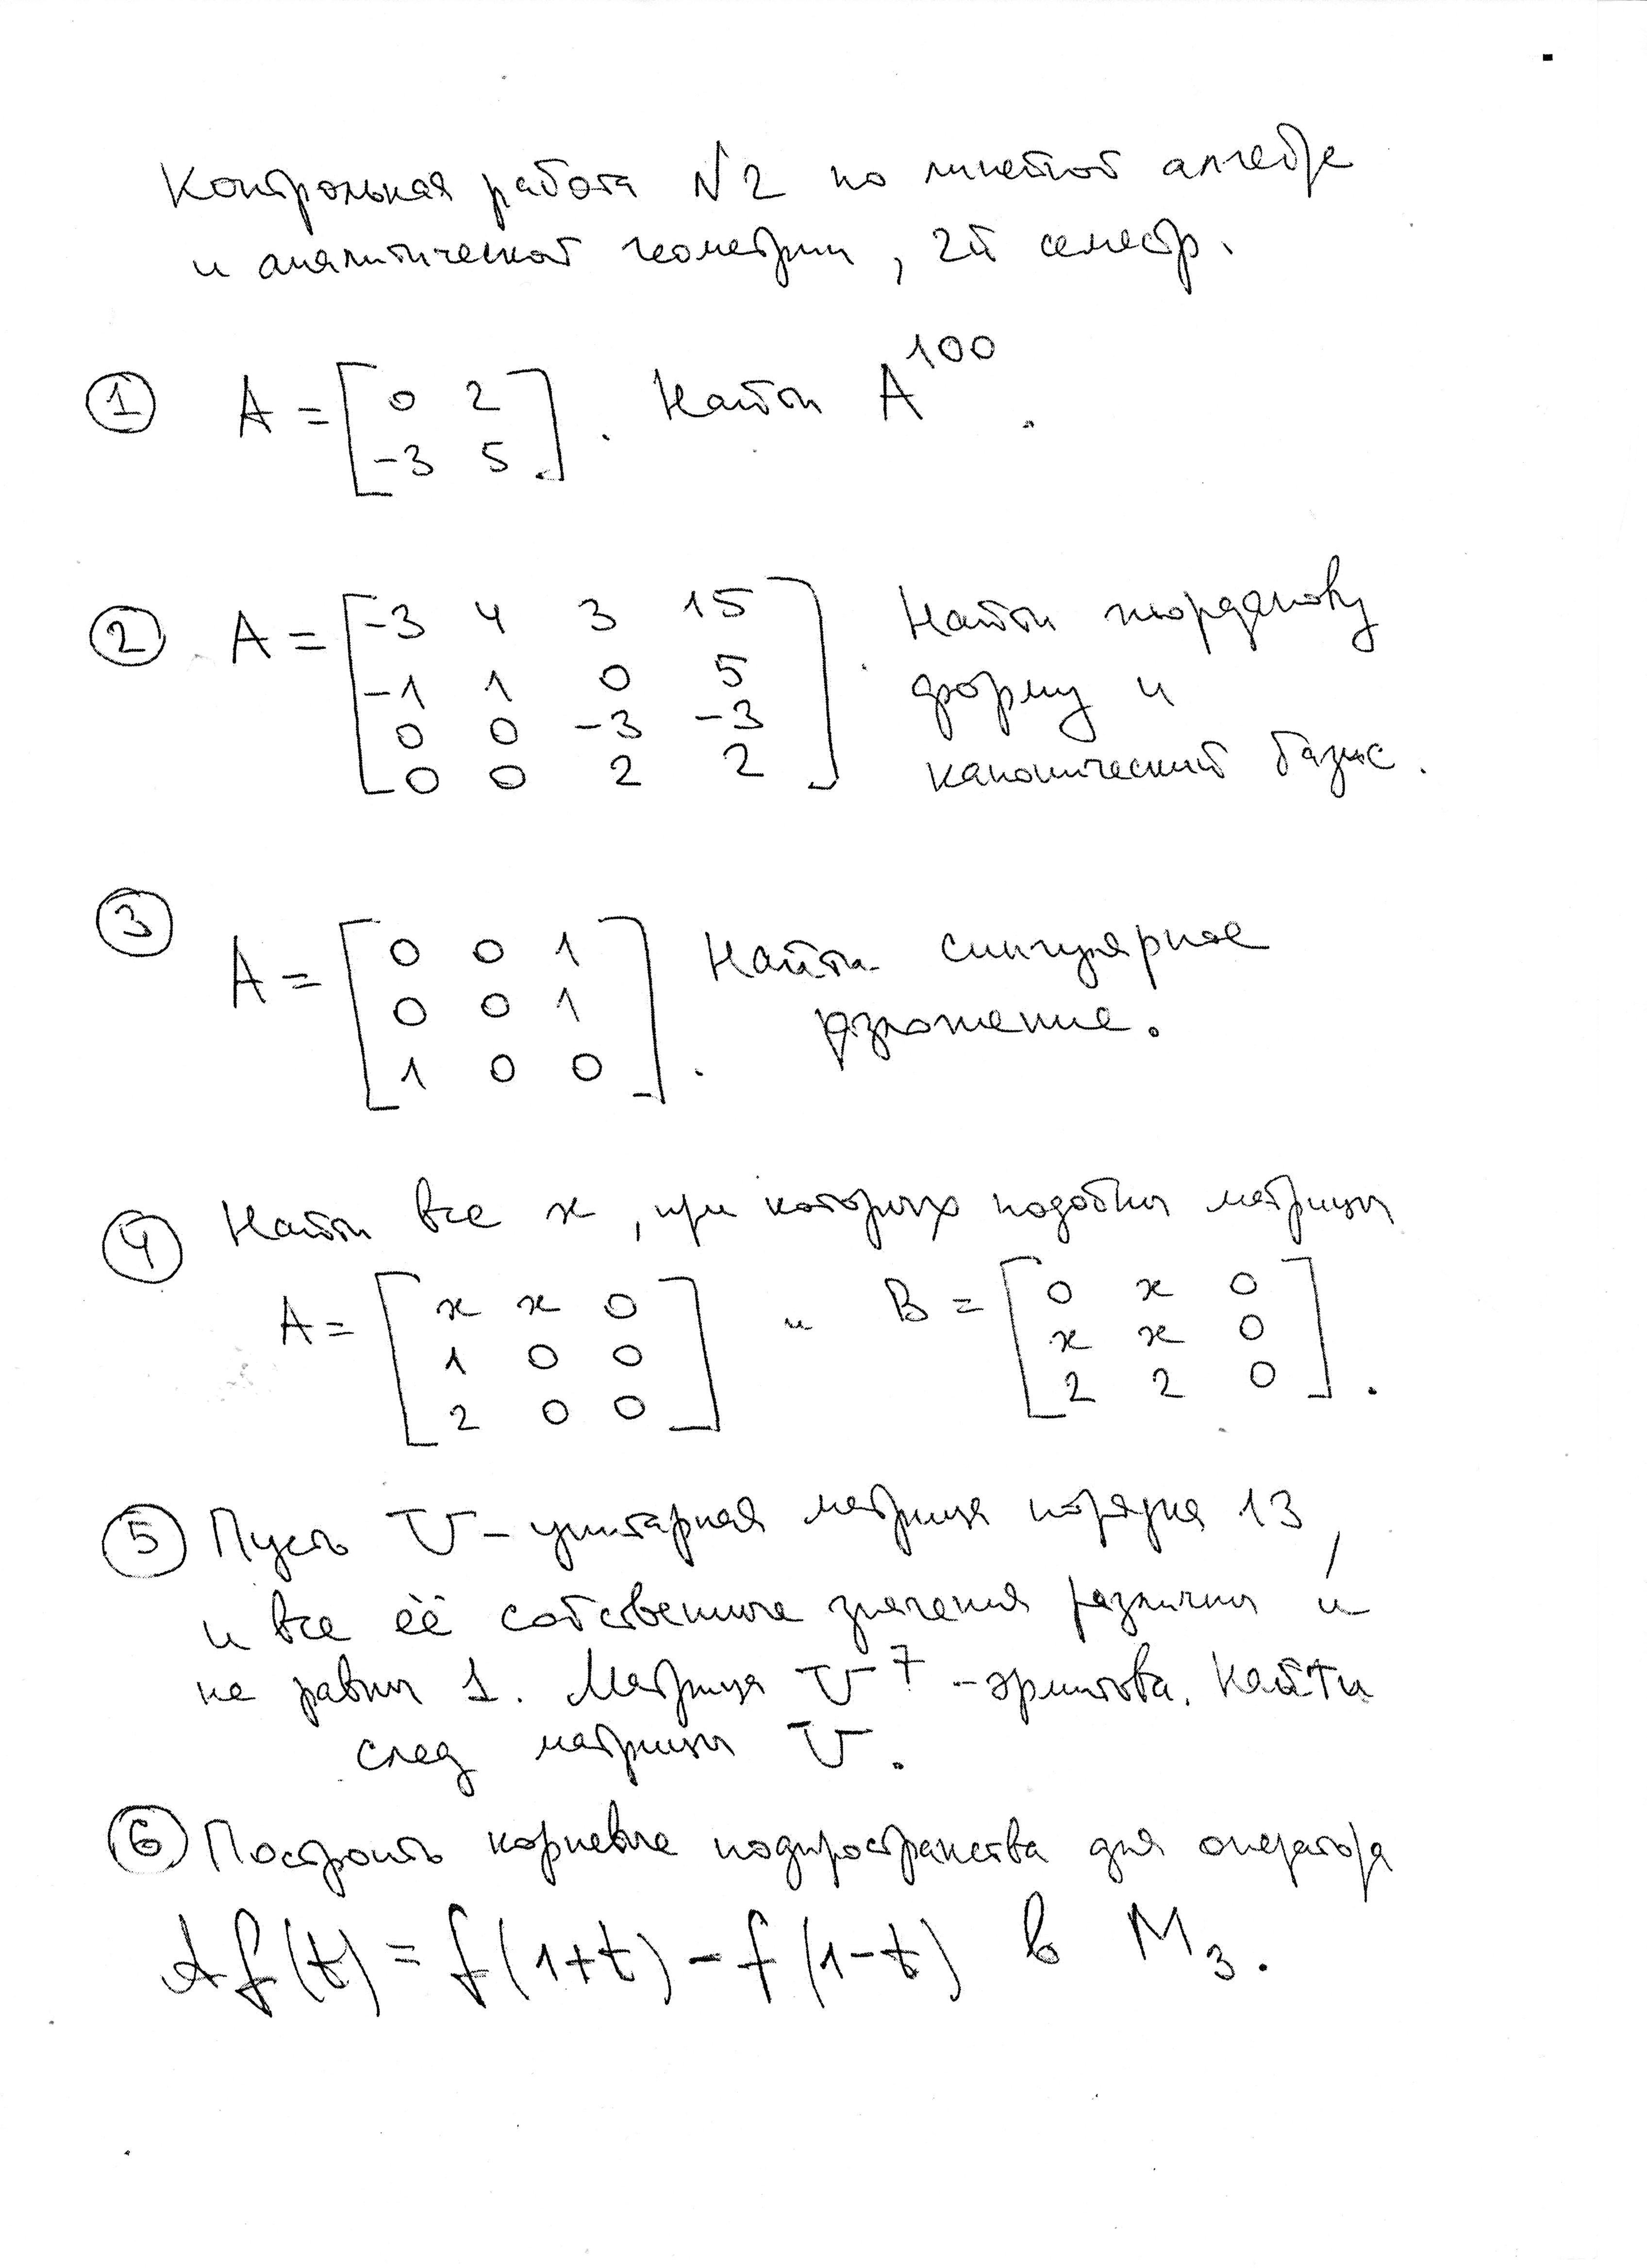 Контрольная работа №2 по линейной алгебре
и аналитической геометрии, 2й семестр.
① A = [0 2; -3 5]. Найти A^100.
② A = [-3 4 3 15; -1 1 0 5; 0 0 -3 -3; 0 0 2 2]. Найти жорданову
форму и
канонический базис.
③ A = [0 0 1; 0 0 1; 1 0 0]. Найти сингулярное
разложение.
④ Найти все x, при которых подобны матрицы
A = [x x 0; 1 0 0; 2 0 0] и B = [0 x 0; x x 0; 2 2 0].
⑤ Пусть U - унитарная матрица порядка 13,
и все её собственные значения различны и
не равны 1. Матрица U^7 - эрмитова. Найти
след матрицы U.
⑥ Построить корневые подпространства для оператора
Af(t) = f(1+t) - f(1-t) в M_3.